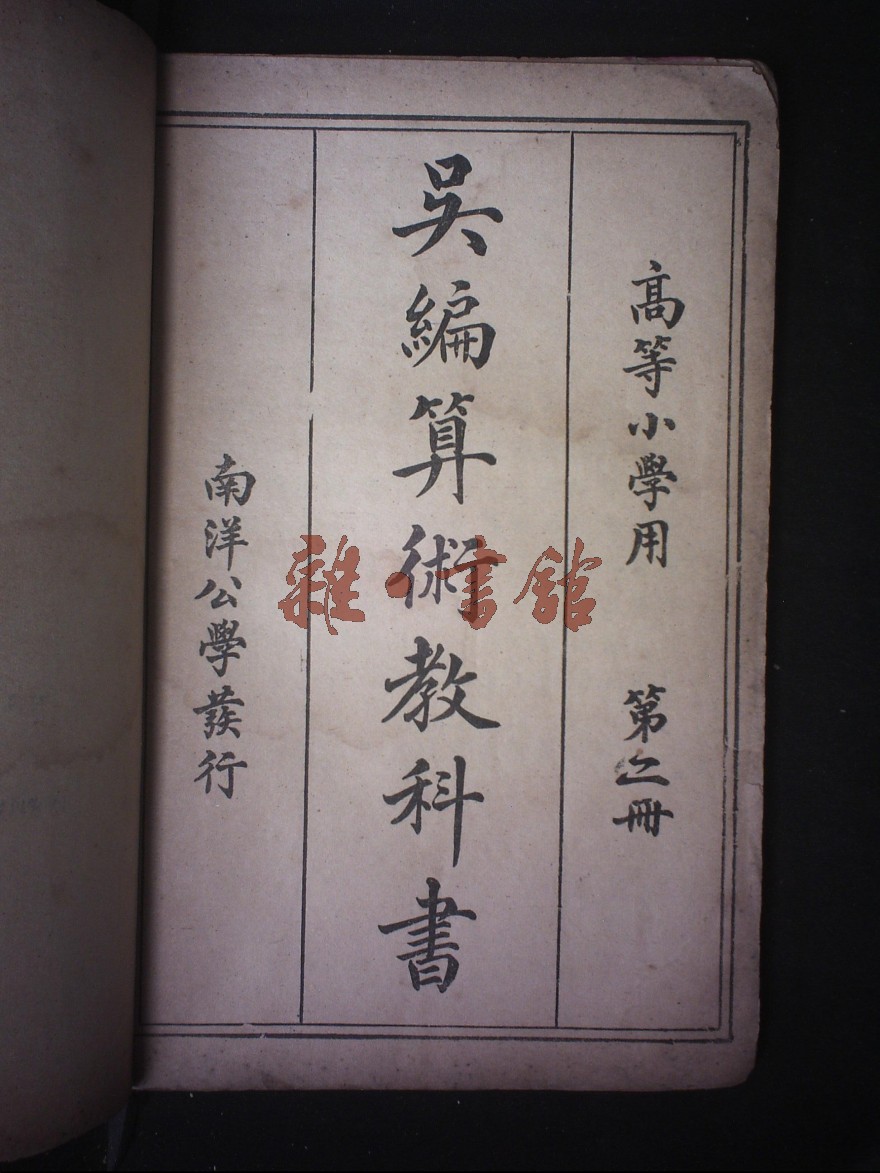 高等小學用 第二冊
吳編算術教科書
南洋公學發行
雜·書館